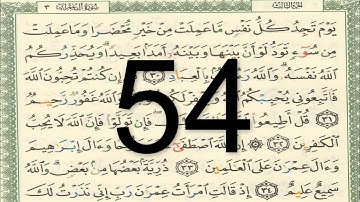 الجزء الثالث سورة آل عمران ٣
يَوْمَ تَجِدُ كُلُّ نَفْسٍ مَّا عَمِلَتْ مِنْ خَيْرٍ مُّحْضَرًا وَمَا عَمِلَتْ
مِن سُوٓءٍ تَوَدُّ لَوْ أَنَّ بَيْنَهَا وَبَيْنَهُۥٓ أَمَدًۢا بَعِيدًا ۗ وَيُحَذِّرُكُمُ
ٱللَّهُ نَفْسَهُۥ ۗ وَٱللَّهُ رَءُوفٌۢ بِٱلْعِبَادِ ٣٠ قُلْ إِن كُنتُمْ تُحِبُّونَ ٱللَّهَ
فَٱتَّبِعُونِى يُحْبِبْكُمُ ٱللَّهُ وَٱللَّهُ غَفُورٌ رَّحِيمٌ
٣١ قُلْ أَطِيعُوا۟ فَإِن تَوَلَّوْا۟ فَإِنَّ ٱللَّهَ لَا يُحِبُّ
ٱلْكَٰفِرِينَ ٣٢ إِنَّ ٱللَّهَ ٱصْطَفَىٰٓ وَءَالَ إِبْرَٰهِيمَ
وَءَالَ عِمْرَٰنَ عَلَى ٱلْعَٰلَمِينَ ٣٣ ذُرِّيَّةًۢ بَعْضُهَا مِنۢ بَعْضٍ ۗ وَٱللَّهُ
سَمِيعٌ عَلِيمٌ ٣٤ إِذْ قَالَتِ ٱمْرَأَتُ عِمْرَٰنَ رَبِّ إِنِّى نَذَرْتُ لَكَ
54